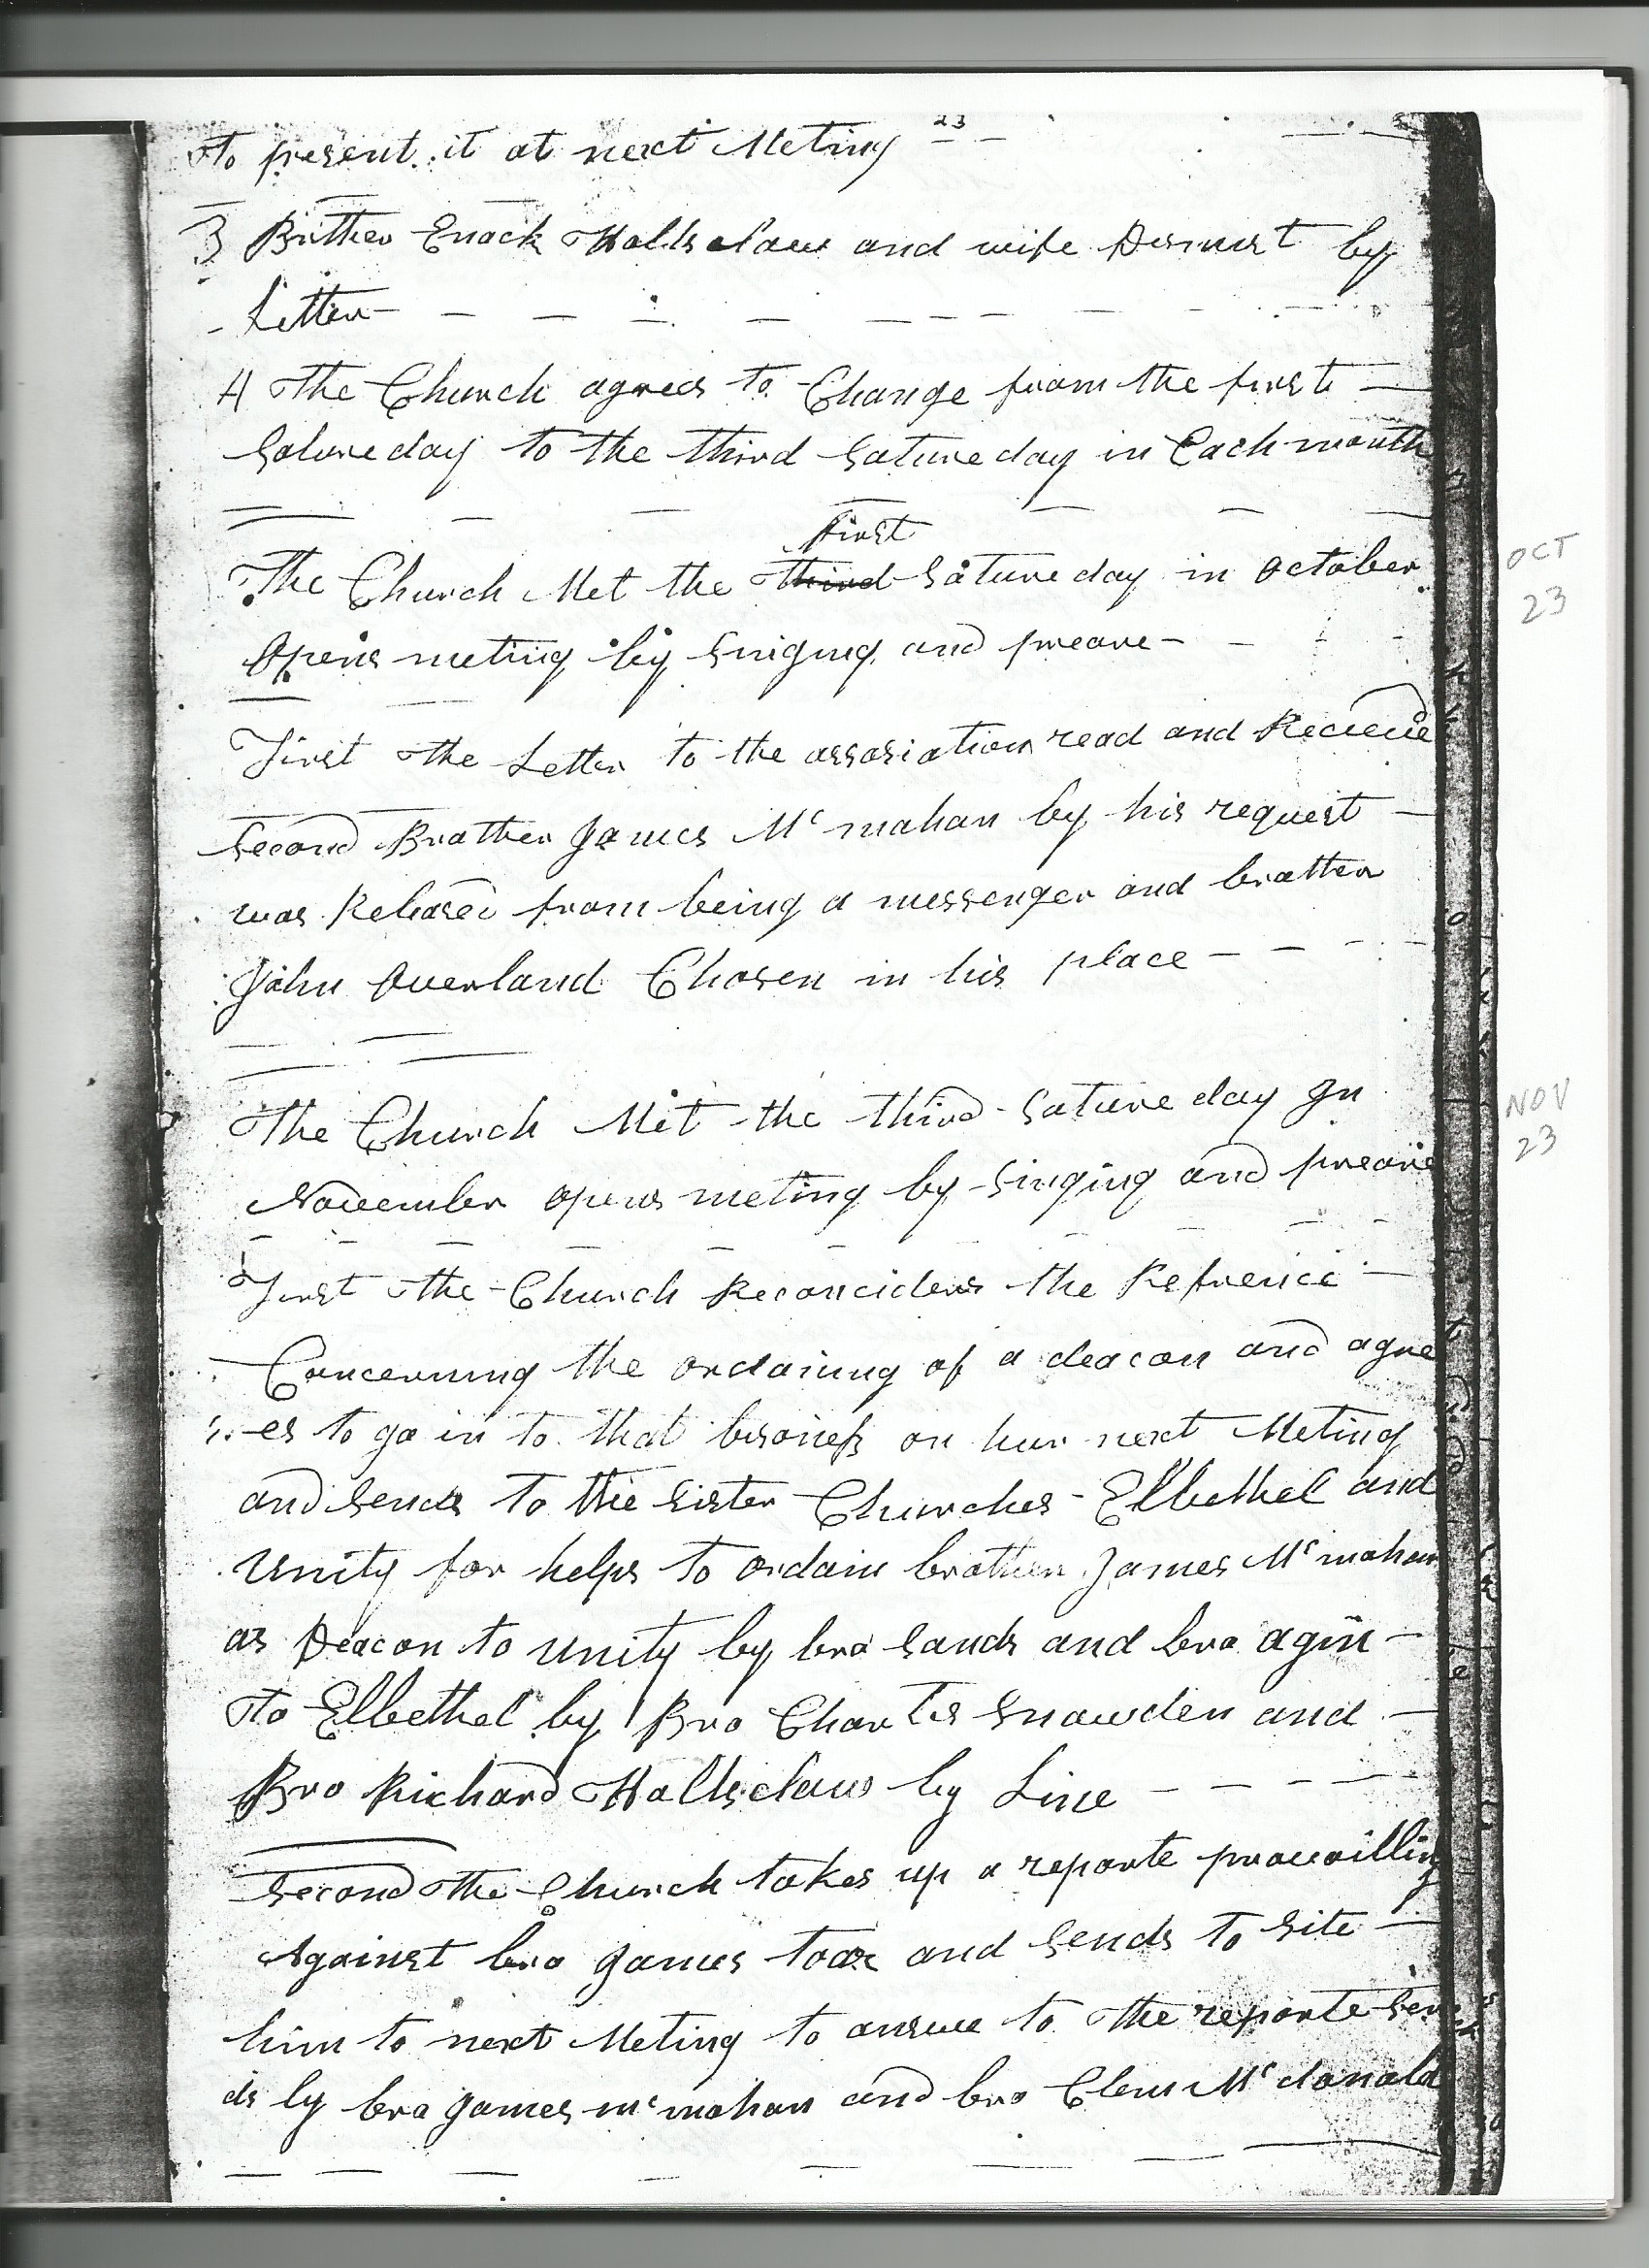 to present it at next Meting 23
3 Brother Enock Hallsclaw and wife Dismist by
Letter
4 The Church agrees to Change from the first
Satureday to the third Satureday in Each month
first
The Church Met the third Satureday in October
Opens meting by Singing and preare
OCT
23
First the Letter to the assosiation read and Recieve
Second Brother James Mc mahan by his request
was Released from being a messenger and brother
John Overland Chosen in his place
The Church Met the third Satureday In
November opens meting by Singing and preare
NOV
23
First the Church Reconciders the Refrence
Concerning the ordaining of a deacon and agre
es to go in to that bisoness on hur next Meting
and sends to the sister Churches Elbethel and
Unity for helps to ordain brother James Mc mahan
as Deacon to Unity by bro Sands and bro agin
To Elbethel by Bro Charles Snowden and
Bro Richard Hallsclaw by Line
Second the Church takes up a reporte prevailling
Against bro James and sends to Site
him to next Meting to answe to the reporte sen
ds by bro James mc mahan and bro Clem Mc donald